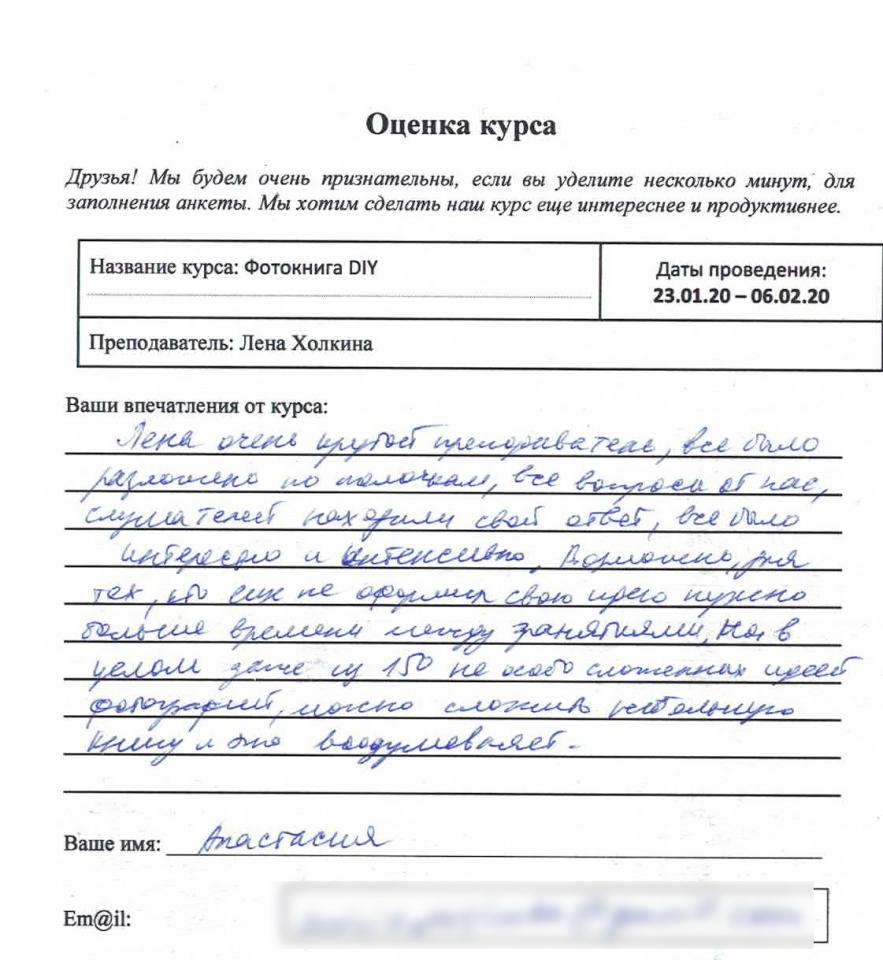 Оценка курса
Друзья! Мы будем очень признательны, если вы уделите несколько минут, для
заполнения анкеты. Мы хотим сделать наш курс еще интереснее и продуктивнее.
Название курса: Фотокнига DIY
Даты проведения:
23.01.20 – 06.02.20
Преподаватель: Лена Холкина
Ваши впечатления от курса:
Лена очень крутой преподаватель, все было
разложено по полочкам, все вопросы от нас,
слушателей находили свой ответ, все было
интересно и интенсивно. Возможно, для
тех, кто еще не оформил свою идею нужно
больше времени между занятиями. Но, в
целом даже из 150 не особо сложенных идеей
фотографий, можно сложить небольшую
книгу и это воодушевляет.
Ваше имя: Анастасия
Em@il: